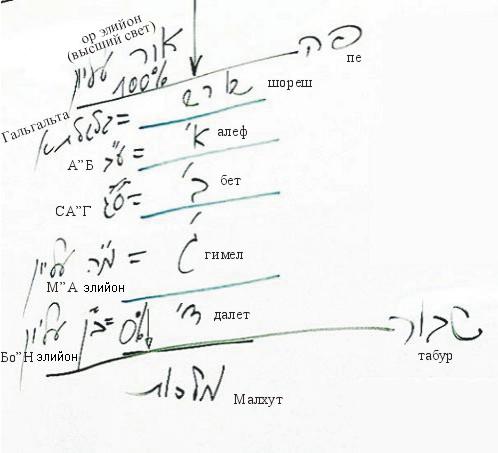 ор элийон
(высший свет)
אור עליון
100%
פה
пе
Гальгальта
גלגלתא = שורש
шореш
А"Б
ע"ב = א'
алеф
СА"Г
ס"ג = ב'
бет
מ"ה עליון = ג'
гимел
М"А элийон
ב"ן עליון = 0% ד'
далет
Бо"Н элийон
טבור
табур
מלכות
Малхут